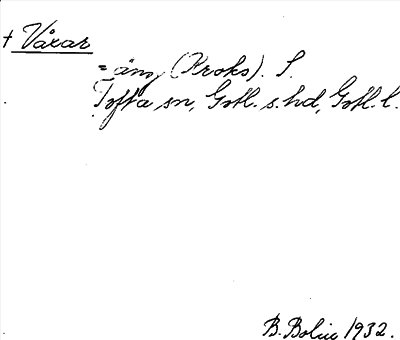 † Vårar
= äng (Kroks). S.
Tofta sn, Gotl. s. hd, Gotl. l.
B. Bolin 1932.